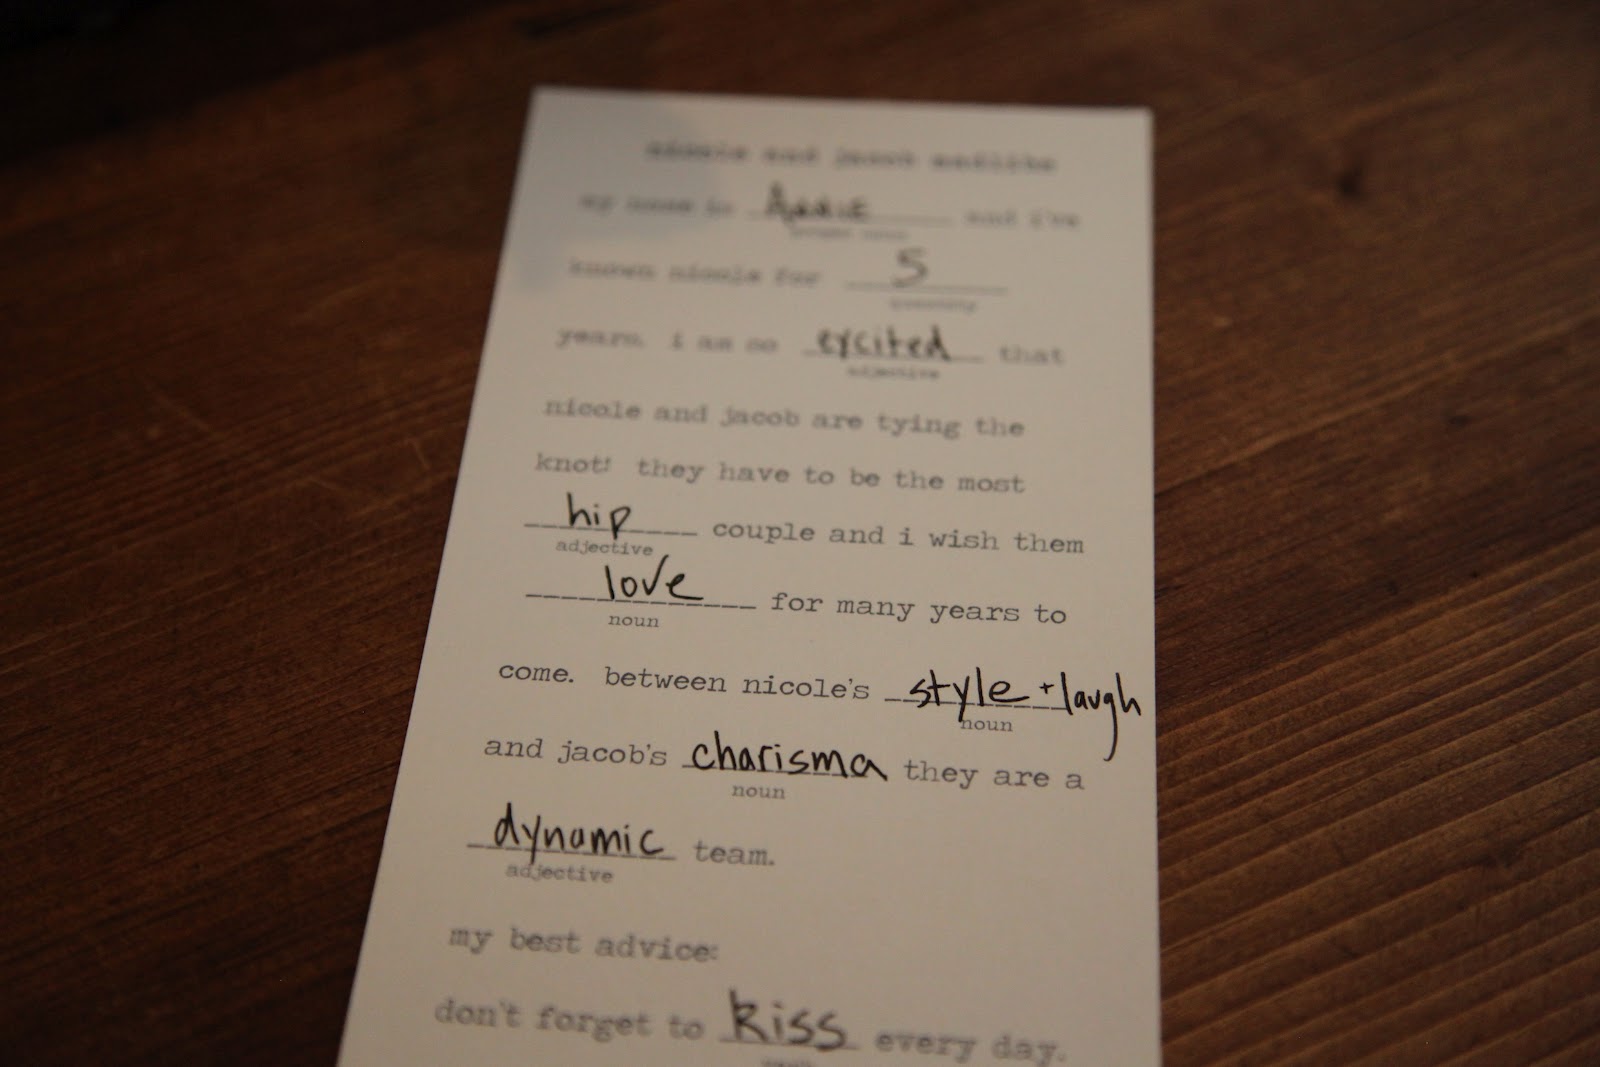 nicole and jacob madlibs
my name is Annie and i've
proper noun
known nicole for 5
quantity
years. i as so excited that
adjective
nicole and jacob are tying the
knot! they have to be the most
hip couple and i wish them
adjective
love for many years to
noun
come. between nicole's style + laugh
noun
and jacob's charisma they are a
noun
dynamic team.
adjective
my best advice:
don't forget to kiss every day.